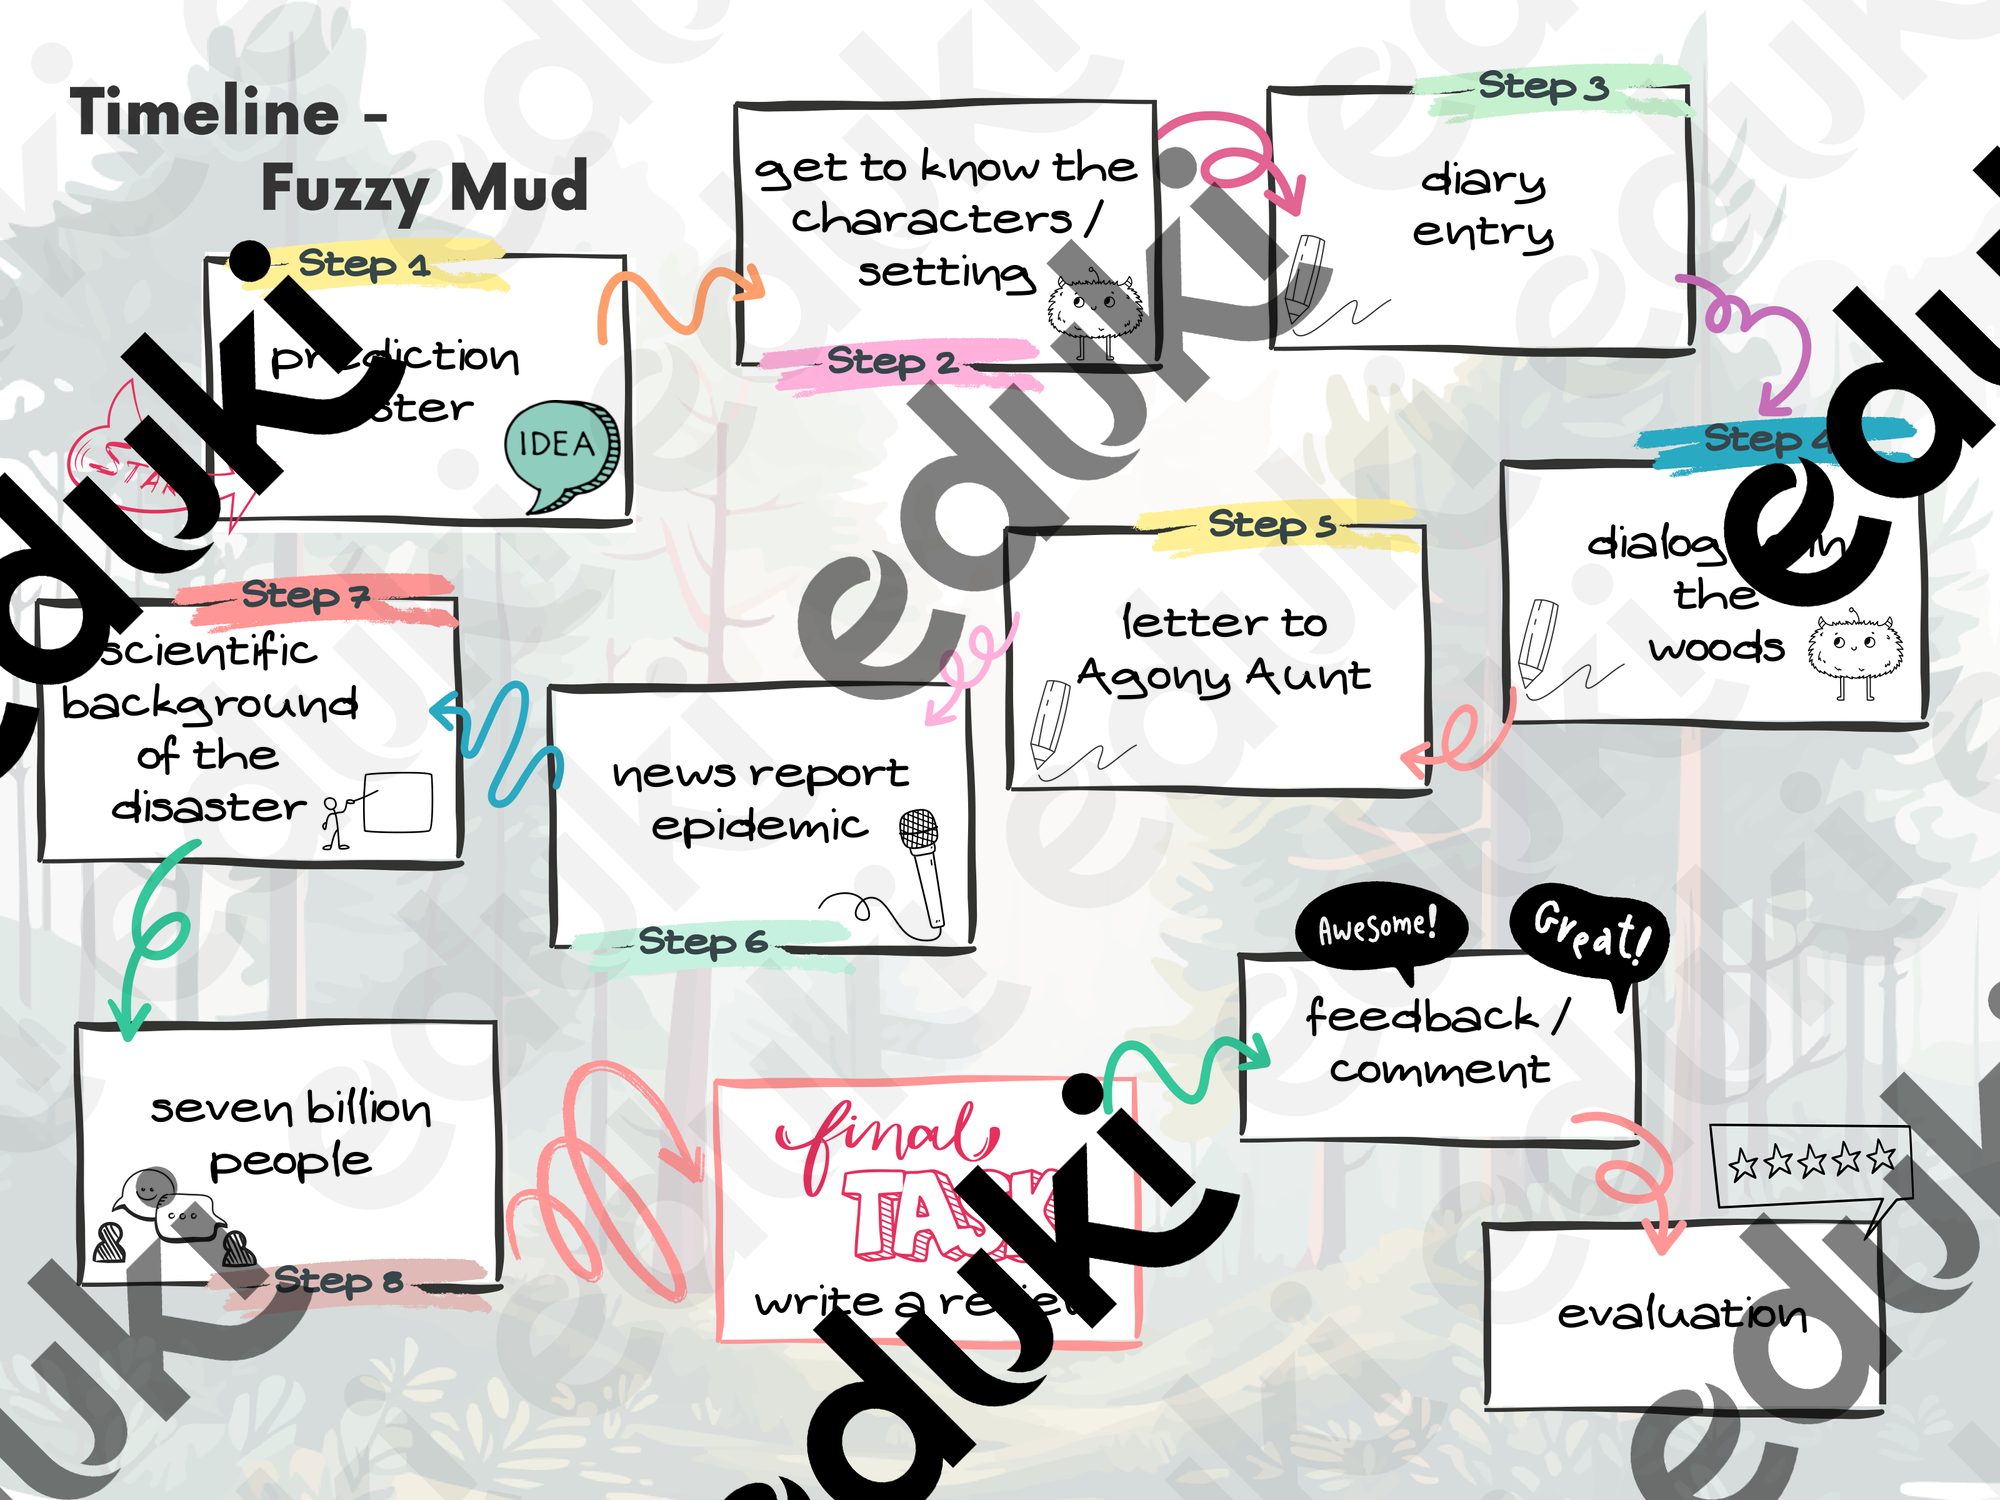 Timeline -
Fuzzy Mud
Step 1
prediction
IDEA
START
get to know the
characters /
setting
Step 2
Step 3
diary
entry
Step 4
in
the
woods
Step 5
letter to
Agony Aunt
news report
epidemic
Step 6
Step 7
scientific
background
of the
disaster
seven billion
people
Step 8
final
TASK
write a review
Awesome!
Great!
feedback /
comment
evaluation
eduki
eduki
eduki
eduki
eduki
eduki